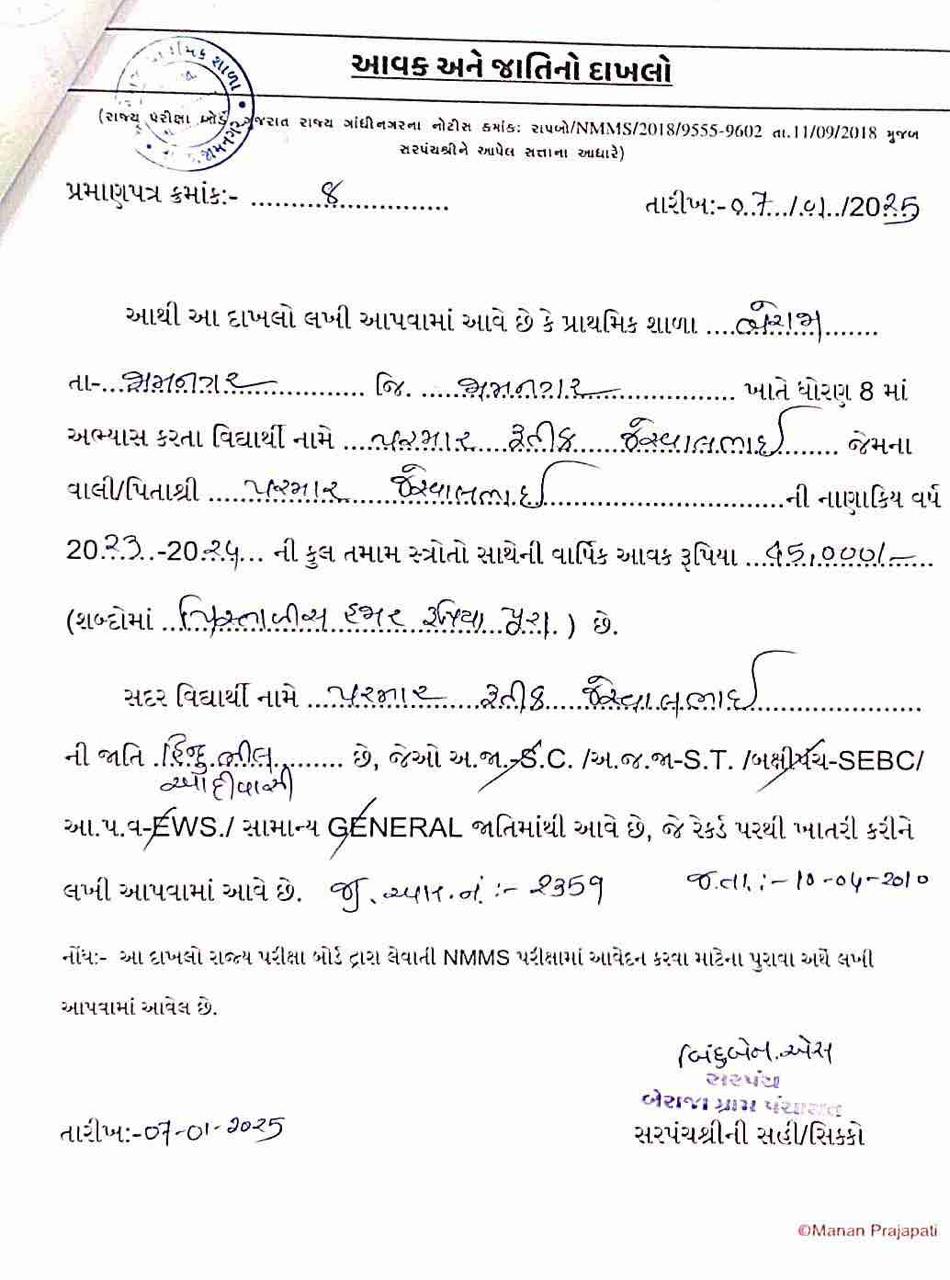 આવક અને જાતિનો દાખલો
(રાજ્ય પરીક્ષા બોર્ડ ગુજરાત રાજ્ય ગાંધીનગરના નોટીસ ક્રમાંક: રાપબો/NMMS/2018/9555-9602 તા.11/09/2018 મુજબ
સરપંચશ્રીને આપેલ સત્તાના આધારે)
પ્રમાણપત્ર ક્રમાંક:- ..........8...............
તારીખ:-07../01../2025
આથી આ દાખલો લખી આપવામાં આવે છે કે પ્રાથમિક શાળા ....બેરાજા.......
તા-...જામનગર.............. જિ. ......જામનગર................ ખાતે ધોરણ 8 માં
અભ્યાસ કરતા વિદ્યાર્થી નામે ....પરમાર....રૂતીક.... ........ જેમના
વાલી/પિતાશ્રી .....પરમાર..... .............................ની નાણાકિય વર્ષ
2023..-2024... ની કુલ તમામ સ્ત્રોતો સાથેની વાર્ષિક આવક રૂપિયા ...45,000/-
(શબ્દોમાં ..પિસ્તાલીસ હજાર રૂપિયા પુરા. ) છે.
સદર વિદ્યાર્થી નામે ....પરમાર....રૂતીક.... ....................
ની જાતિ .હિન્દુ ભીલ.......... છે, જેઓ અ.જા.-S.C. /અ.જ.જા-S.T. /બક્ષીપંચ-SEBC/
આદીવાસી
આ.પ.વ-EWS./ સામાન્ય GENERAL જાતિમાંથી આવે છે, જે રેકર્ડ પરથી ખાતરી કરીને
લખી આપવામાં આવે છે. જી.આર.નં :- 2359 જ.તા. :- 10-04-2010
નોંધ:- આ દાખલો રાજ્ય પરીક્ષા બોર્ડ દ્વારા લેવાતી NMMS પરીક્ષામાં આવેદન કરવા માટેના પુરાવા અર્થે લખી
આપવામાં આવેલ છે.
બિંદુબેન.એસ
સરપંચ
બેરાજા ગ્રામ પંચાયત
તારીખ:-07-01-2025
સરપંચશ્રીની સહી/સિક્કો
©Manan Prajapati